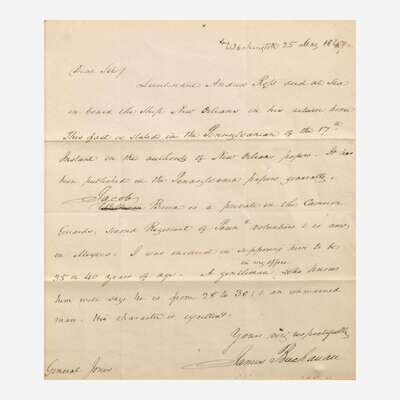 Washington 25 May 1847
(Dear Sir)
Lieutenant Andrew Ross died at Sea
on board the Ship New Orleans on his return home
This fact is stated in the Pennsylvanian of the 17th
Instant on the authority of New Orleans papers. It has
been published in the Pennsylvania papers generally.
Jacob
is a private in the Cameron
Guards, Second Regiment of Penna volunteers & is now
in Mexico. I was mistaken in supposing him to be
in my office
35 or 40 years of age. A gentleman who knows
him well says he is from 28 to 30; & an unmarried
man. His character is excellent.
Yours very respectfully
James Buchanan
General Jones